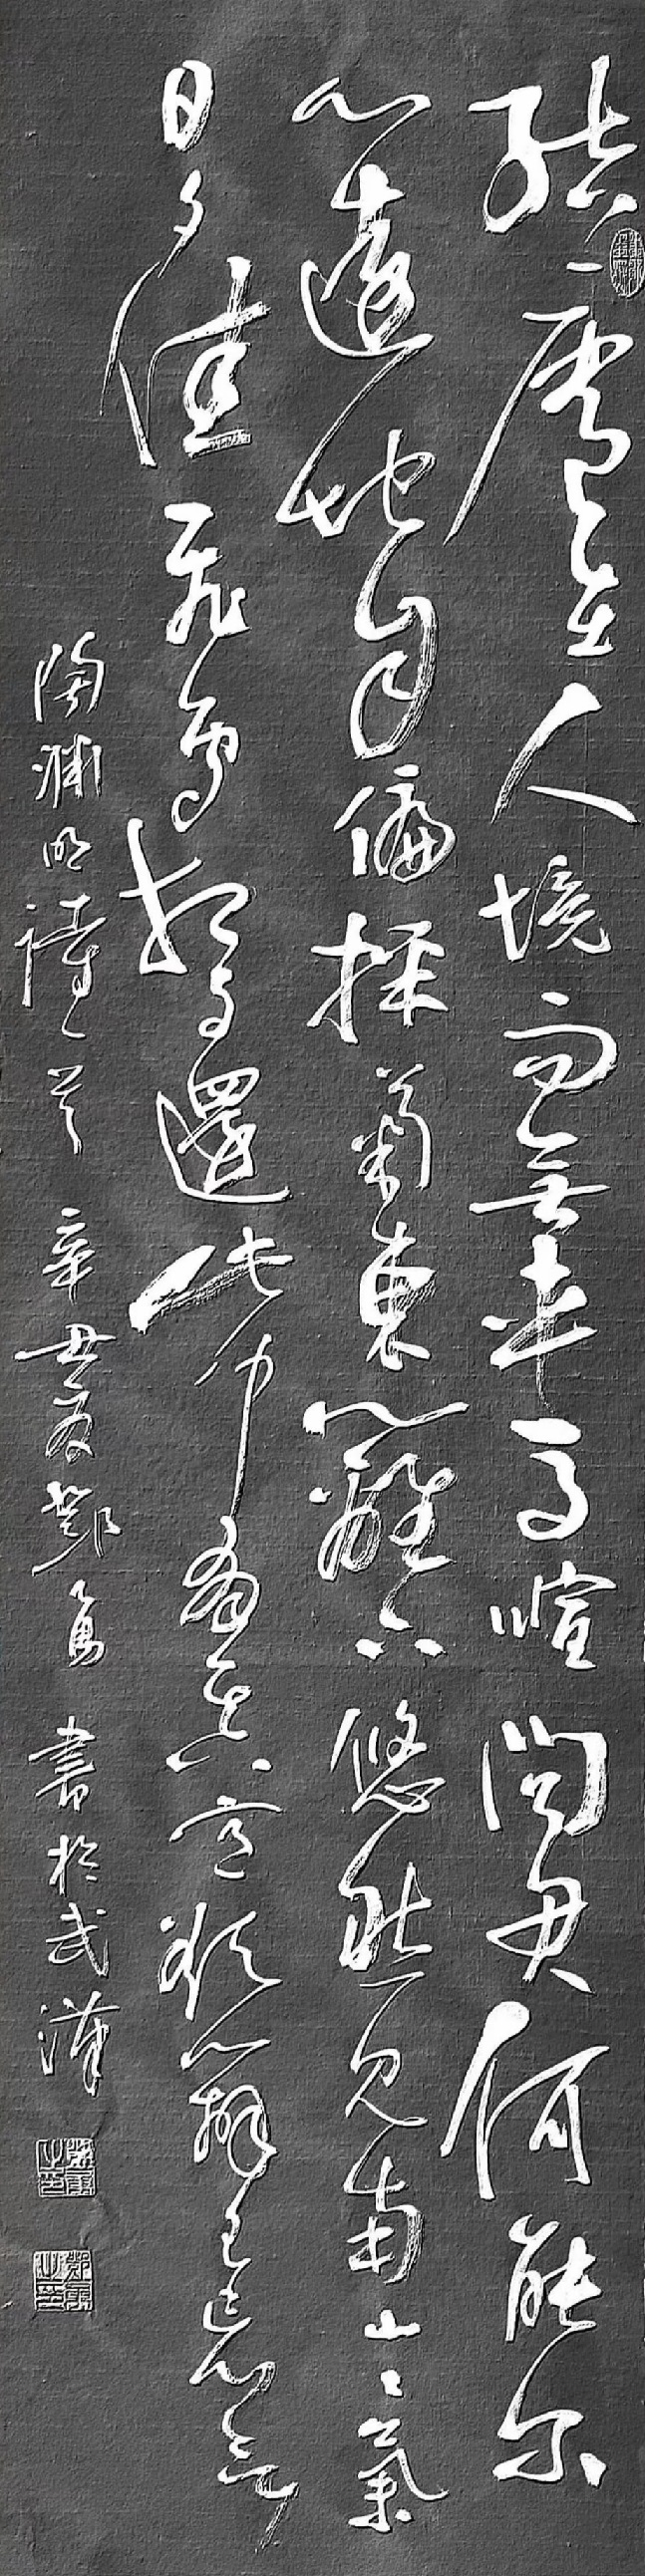 結廬在人境而無車馬喧問君何能尔
心遠地自偏採菊東籬下悠然見南山々氣
日夕佳飛鳥相與還此中有真意欲辯已忘言
陶淵明詩一首 辛丑夏鄭勇 書於武漢